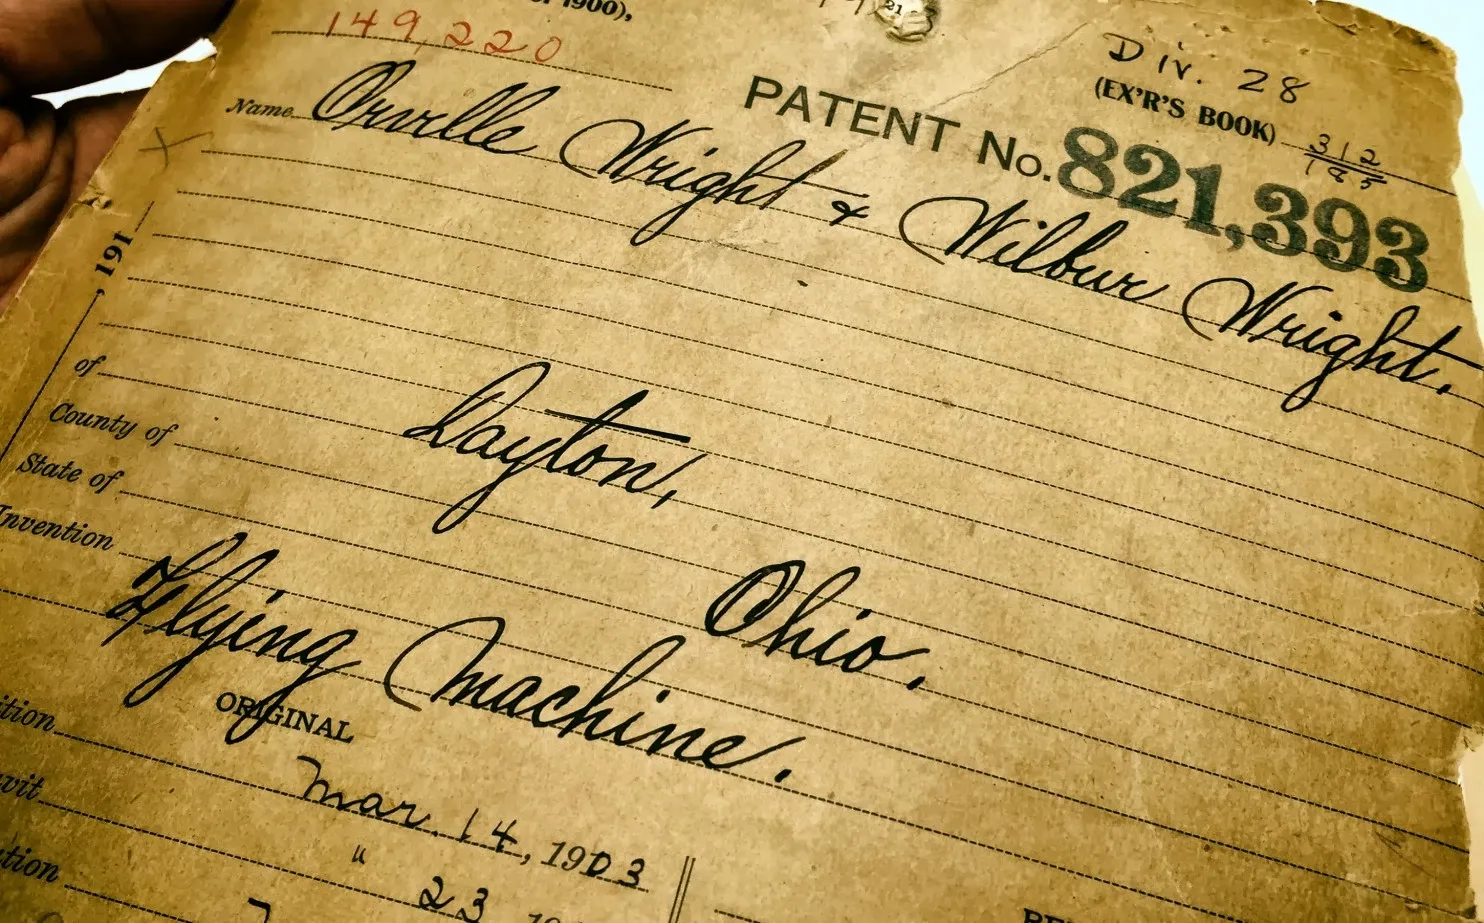 1900),
149,220
Div. 28
(EX'R'S BOOK) 312
185
PATENT No. 821,393
Name Orville Wright & Wilbur Wright.
, 191
of
Dayton,
County of
State of
Ohio.
Invention
Flying Machine.
ORIGINAL
Mar. 14, 1903
" 23